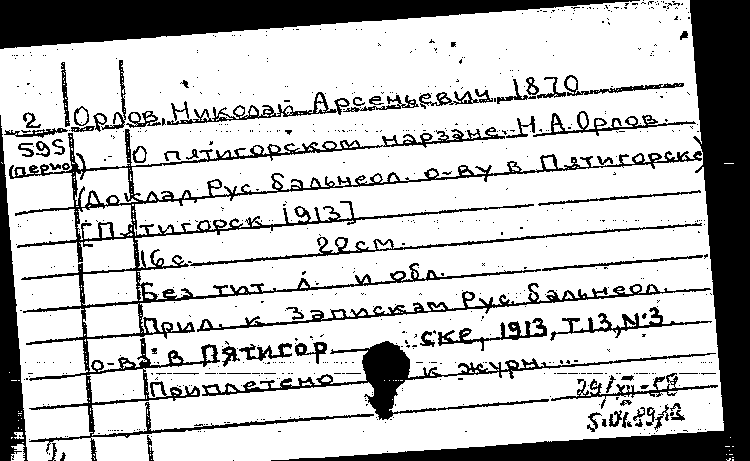 2 Орлов, Николай Арсеньевич, 1870
595 О пятигорском нарзане. Н.А. Орлов.
(период)
(Доклад Рус. бальнеол. о-ву в Пятигорске)
[Пятигорск, 1913]
16 с. 22 см.
Без тит. л. и обл.
Прил. к Запискам Рус. бальнеол.
о-ва в Пятигор ске, 1913, Т.13, №3.
Приплетено к журн. ...
29/XII-58